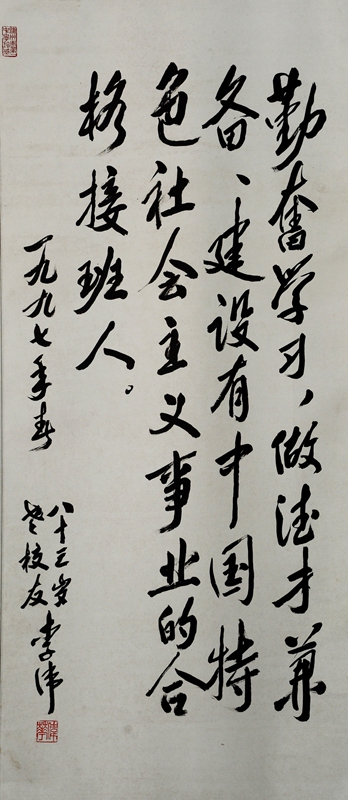 勤奋学习，做德才兼
备、建设有中国特
色社会主义事业的合
格接班人。
一九九七年春
八十三岁
老校友 李伟